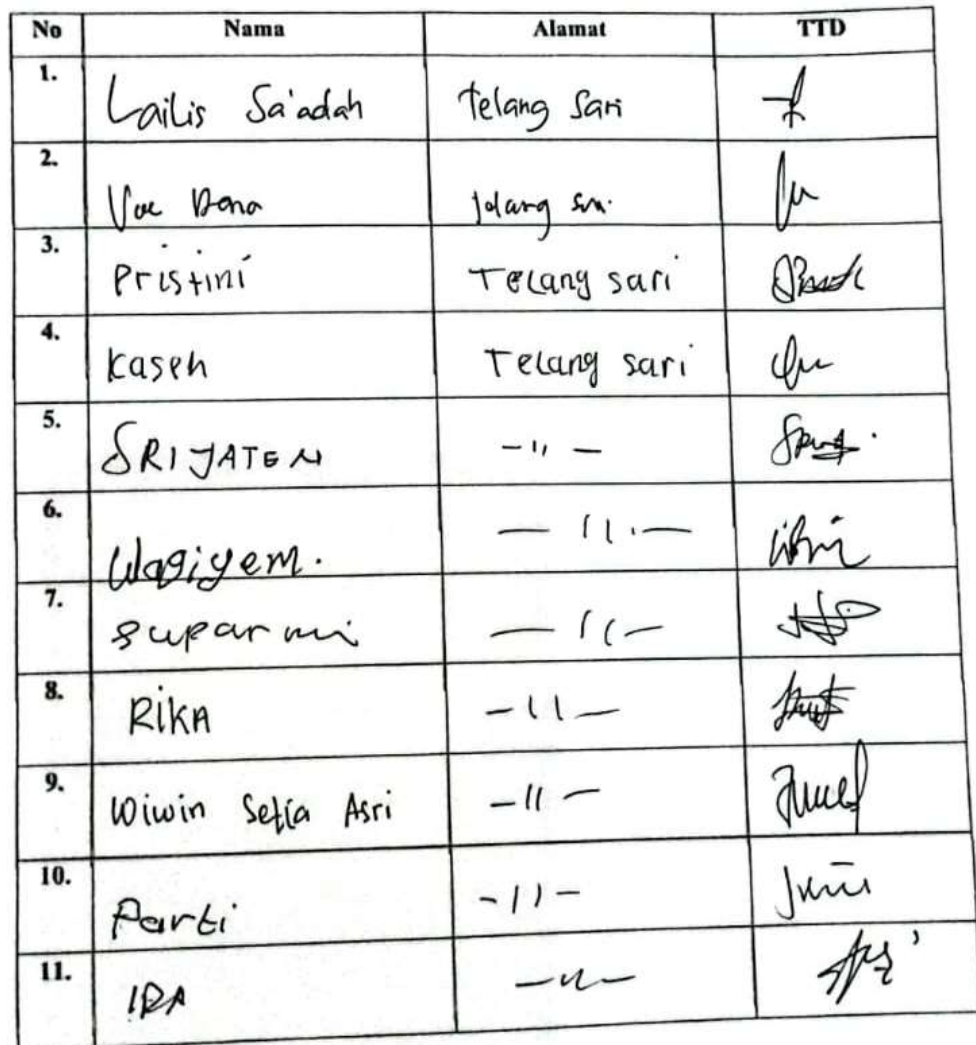 No Nama Alamat TTD
1. Lailis Sa'adah Telang Sari
2.
3. Pristini Telang sari
4. Kaseh Telang sari
5. SRIYATEN -"-
6. Wagiyem. -"-
7. Suparmi -"-
8. RIKA -"-
9. Wiwin Setia Asri -"-
10. Parti -"-
11. IDA -"-